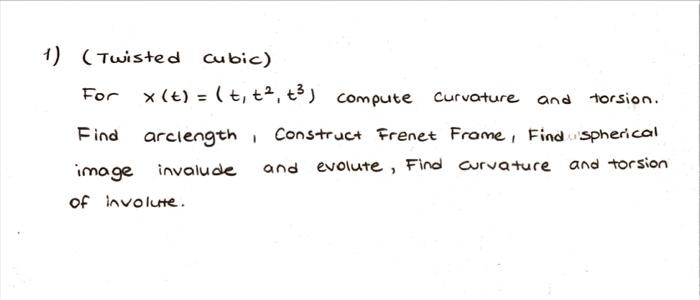 1) (Twisted cubic)
For x(t) = (t, t², t³) compute curvature and torsion.
Find arclength, Construct Frenet Frame, Find spherical
image invalude and evolute, Find curvature and torsion
of involute.